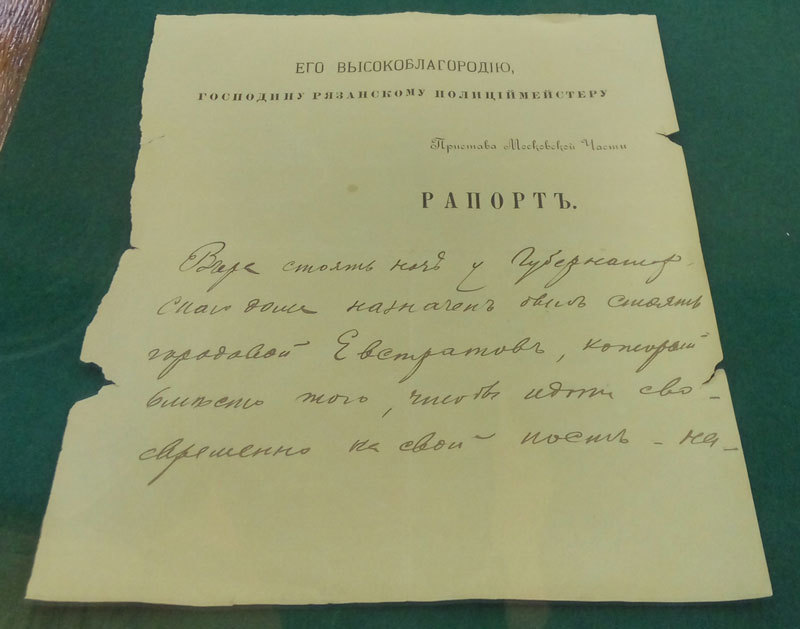 ЕГО ВЫСОКОБЛАГОРОДІЮ,
ГОСПОДИНУ РЯЗАНСКОМУ ПОЛИЦІЙМЕЙСТЕРУ
Пристава Московской Части
РАПОРТЪ.
стоять ночь у Губернатор
скаго дома назначенъ былъ стоять
городовой Евстратовъ, который
вмѣсто того, чтобы идти сво-
евременно на свой постъ - на-